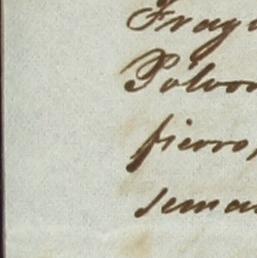 Frag
Pólvo
fierro,
sema